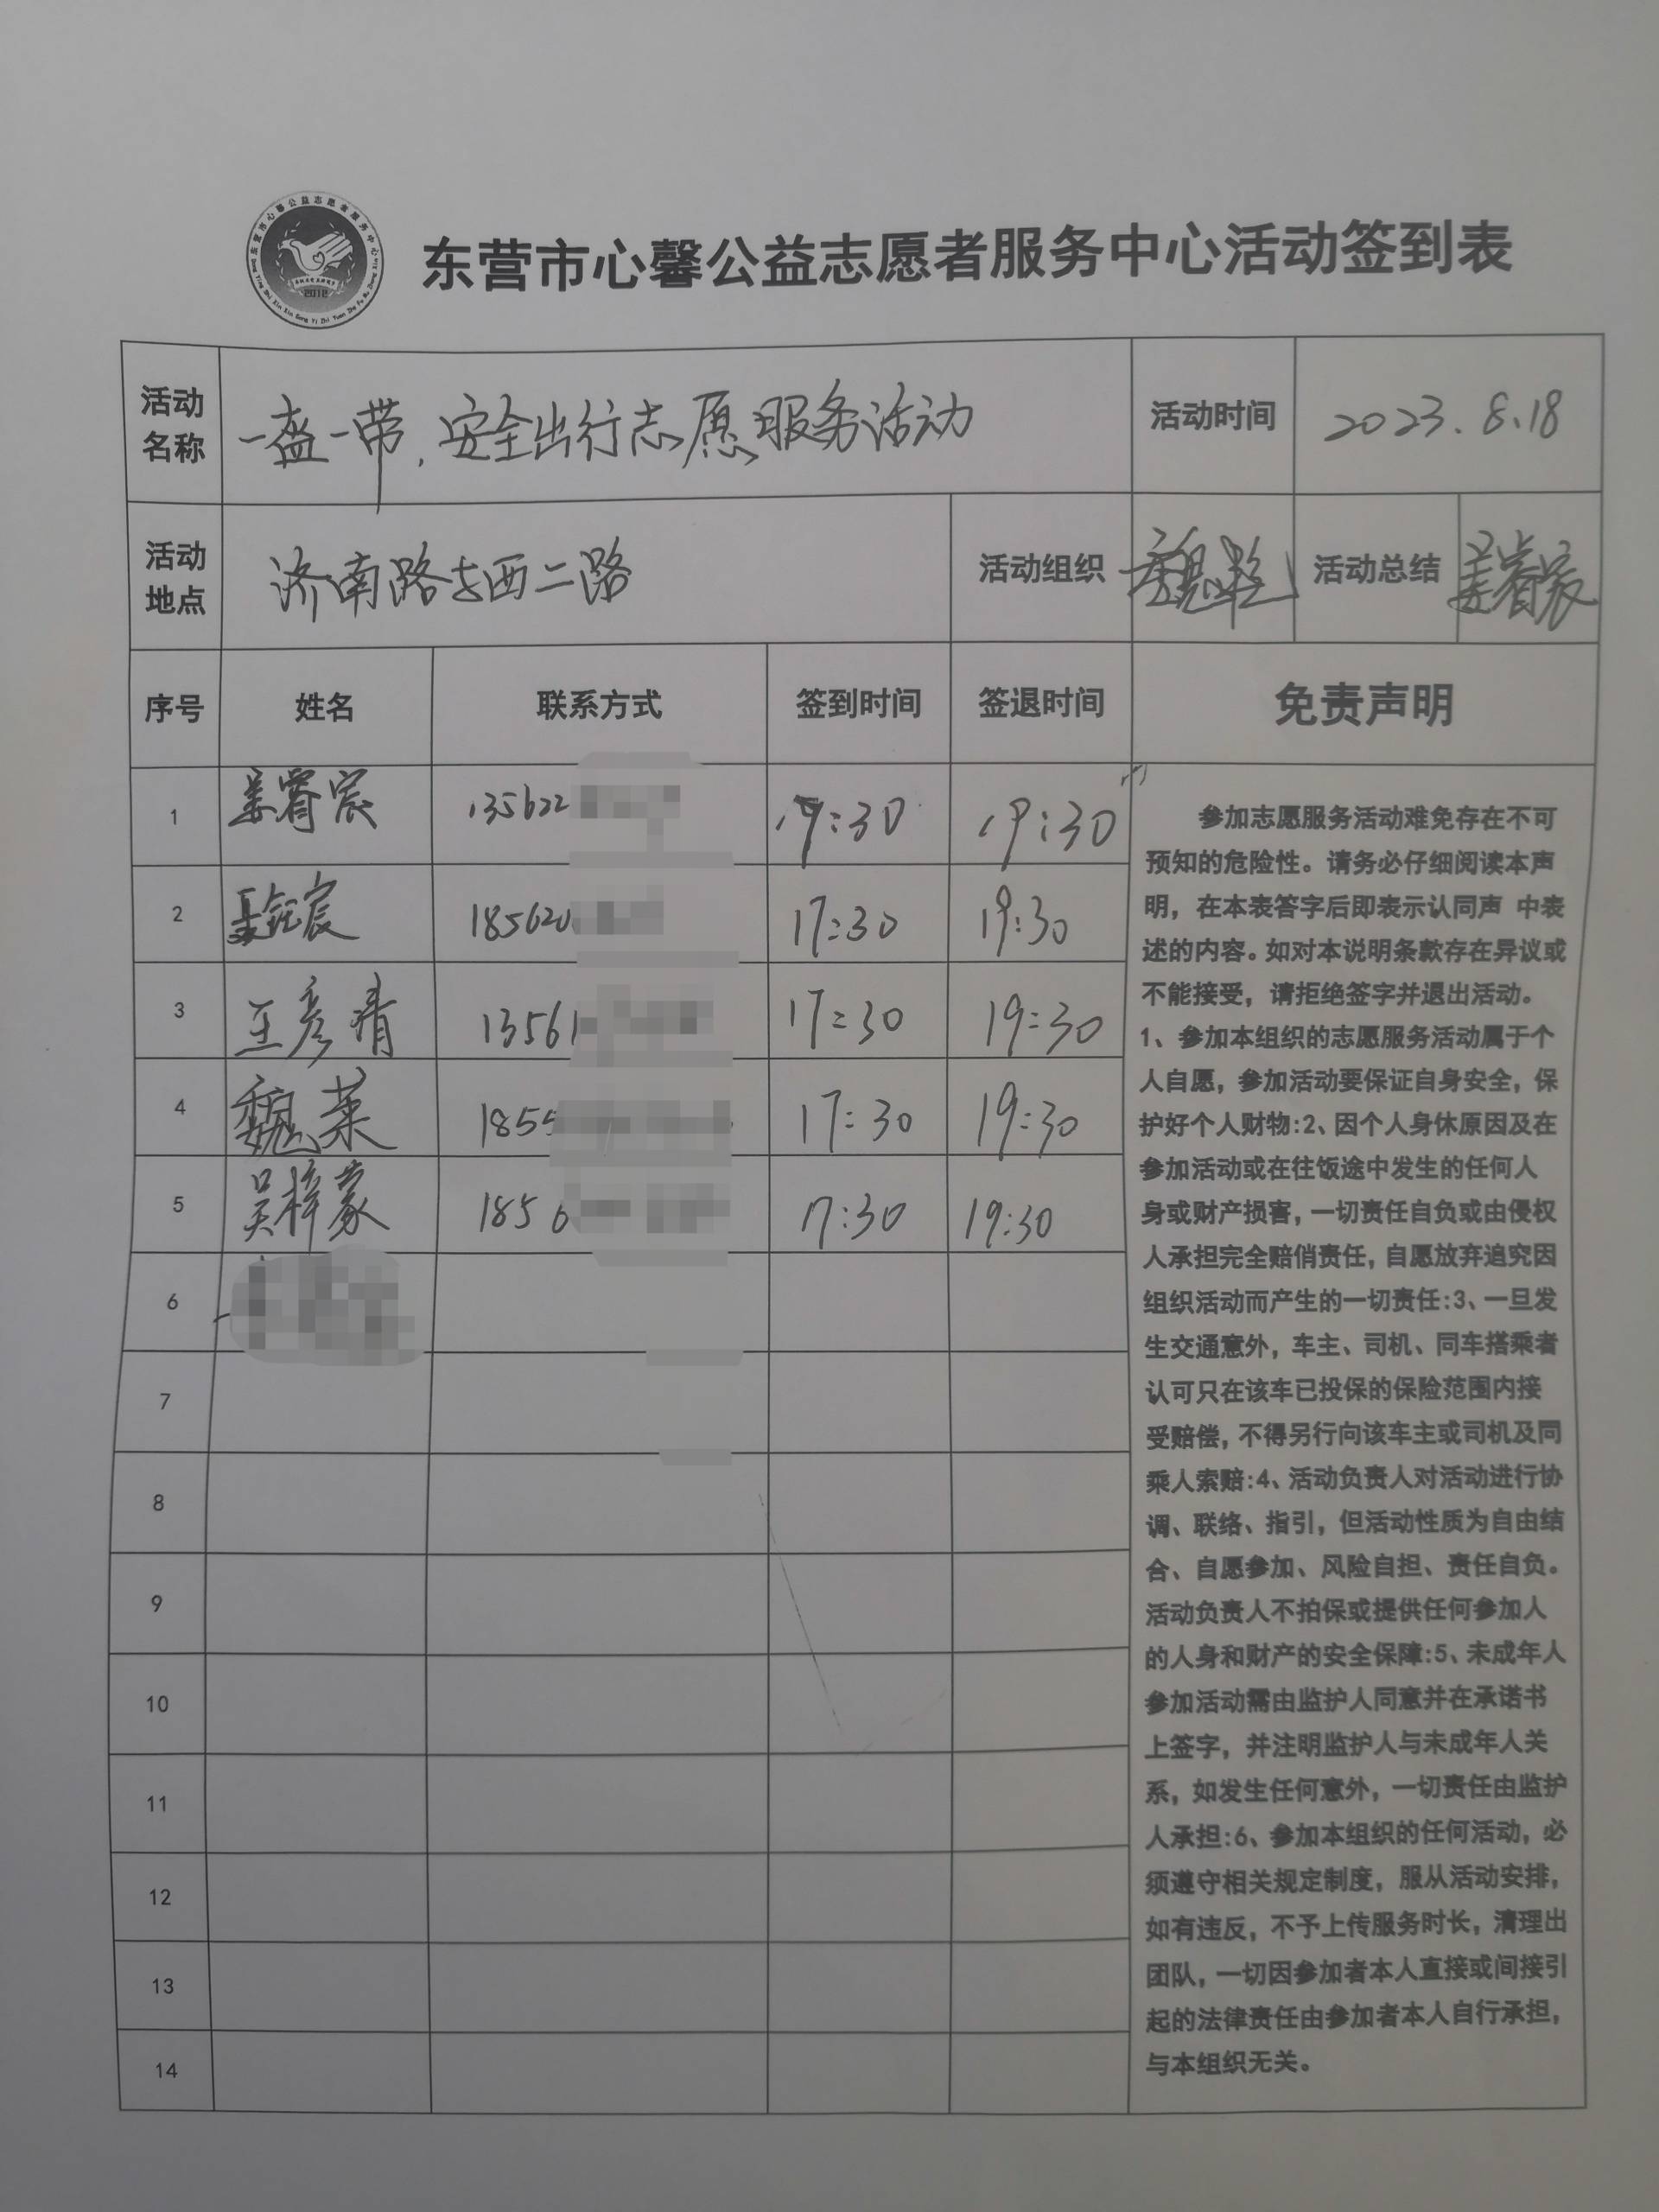 东营市心馨公益志愿者服务中心
2012
东营市心馨公益志愿者服务中心活动签到表
活动名称 一盔一带,安全出行志愿服务活动 活动时间 2023.8.18
活动地点 济南路与西二路 活动组织 活动总结 姜睿宸
序号 姓名 联系方式 签到时间 签退时间 免责声明
1 姜睿宸 135622 17:30 19:30
2 185620 17:30 19:30
3 王彦清 13561 17:30 19:30
4 魏莱 1855 17:30 19:30
5 吴梓豪 1856 17:30 19:30
6
7
8
9
10
11
12
13
14
参加志愿服务活动难免存在不可
预知的危险性。请务必仔细阅读本声
明，在本表答字后即表示认同声 中表
述的内容。如对本说明条款存在异议或
不能接受，请拒绝签字并退出活动。
1、参加本组织的志愿服务活动属于个
人自愿，参加活动要保证自身安全，保
护好个人财物:2、因个人身休原因及在
参加活动或在往饭途中发生的任何人
身或财产损害，一切责任自负或由侵权
人承担完全赔俏责任，自愿放弃追究因
组织活动而产生的一切责任:3、一旦发
生交通意外，车主、司机、同车搭乘者
认可只在该车已投保的保险范围内接
受赔偿，不得另行向该车主或司机及同
乘人索赔:4、活动负责人对活动进行协
调、联络、指引，但活动性质为自由结
合、自愿参加、风险自担、责任自负。
活动负责人不拍保或提供任何参加人
的人身和财产的安全保障:5、未成年人
参加活动需由监护人同意并在承诺书
上签字，并注明监护人与未成年人关
系，如发生任何意外，一切责任由监护
人承担:6、参加本组织的任何活动，必
须遵守相关规定制度，服从活动安排，
如有违反，不予上传服务时长，清理出
团队，一切因参加者本人直接或间接引
起的法律责任由参加者本人自行承担，
与本组织无关。